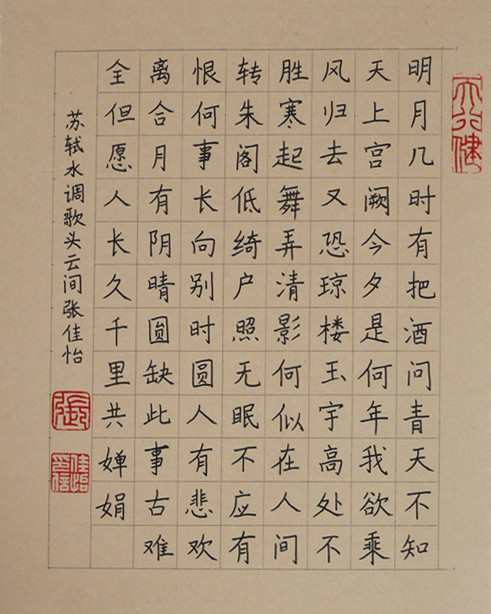 天行健
明月几时有把酒问青天不知
天上宫阙今夕是何年我欲乘
风归去又恐琼楼玉宇高处不
胜寒起舞弄清影何似在人间
转朱阁低绮户照无眠不应有
恨何事长向别时圆人有悲欢
离合月有阴晴圆缺此事古难
全但愿人长久千里共婵娟
苏轼水调歌头云间张佳怡
張